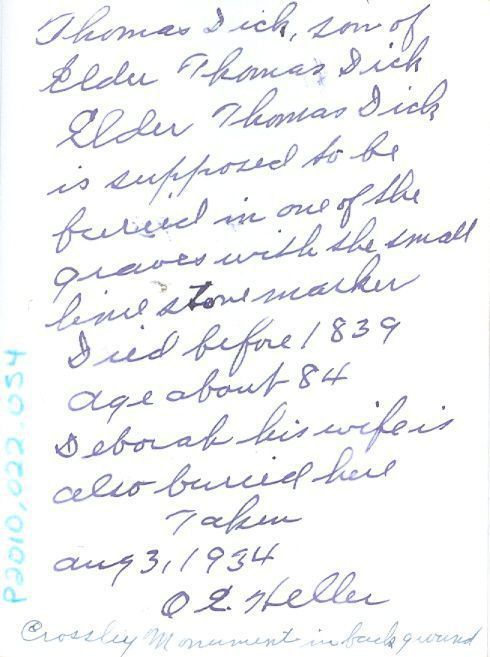 Thomas Dick, son of
Elder Thomas Dick
Elder Thomas Dick
is supposed to be
buried in one of the
graves with the small
lime stone marker
Died before 1839
age about 84
Deborah his wife is
also buried here
Taken
aug 3, 1934
O E. Heller
Crossley Monument in back ground
P2010,022.054